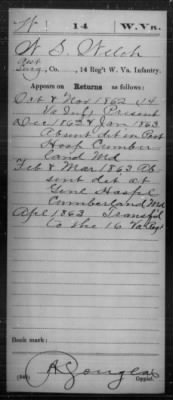 W | 14 | W.Va.
W S Welch
Asst
Surg., Co. ......, 14 Reg't W. Va. Infantry.
Appears on Returns as follows:
Oct & Nov 1862 14
Va Inf, Present
Dec 1862 & Jan 1863
Absent det in Post
Hosp Cumber
land Md
Feb & Mar 1863 Ab
sent det at
Genl Hospl
Cumberland Md
Apl 1863 Transf'd
to the 16 Va Regt
Book mark:
Copist.